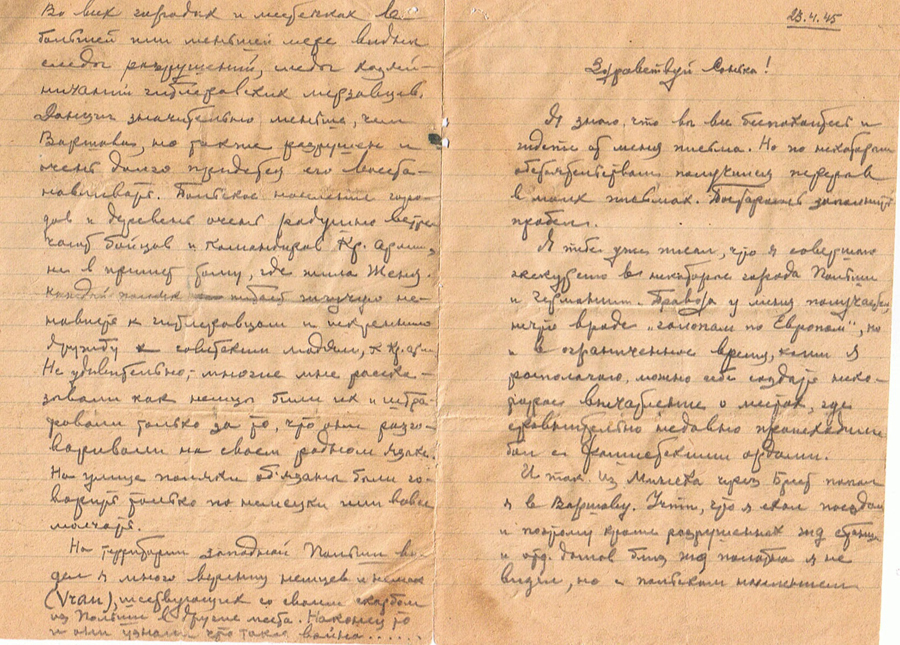 23.4.45
Здравствуй Сонька!
Я знаю, что вы все беспокоитесь и
ждете от меня письма. Но по некоторым
обстоятельствам получился перерыв
в моих письмах. Постараюсь заполнить
пробел.
Я тебе уже писал, что я совершаю
экскурсию в некоторые города Польши
и Германии. Правда у меня получается
нечто вроде „галопом по Европам", но
и в ограниченное время, каким я
располагаю, можно себе создать неко-
торое впечатление о местах, где
сравнительно недавно происходили
бои с фашистскими ордами.
И так из Минска через Брест попал
я в Варшаву. Учти, что я ехал поездом
и поэтому кроме разрушенных жд станций
и отд. домов близ жд полотна я не
видел, но с польским населением
Во всех городах и местечках в
большей или меньшей мере видны
следы разрушений, следы хозяй-
ничания гитлеровских мерзавцев.
Данциг значительно меньше, чем
Варшава, но также разрушен и
очень долго придется его восста-
навливать. Польское население горо-
дов и деревень очень радушно встре-
чает бойцов и командиров Кр. армии,
не в пример тому, где жила Женя.
Каждый поляк питает жгучую не-
нависть к гитлеровцам и искреннюю
дружбу к советским людям, к Кр. арм.
Не удивительно, - многие мне расска-
зывали как немцы били их и штра-
фовали только за то, что они разго-
варивали на своем родном языке.
На улице поляки обязаны были го-
ворить только по немецки или вовсе
молчать.
На территории западной Польши ви-
дел я много верениц немцев и немок
(Vrau), шествующих со своим скарбом
из Польши в другие места. Наконец то
и они узнали что такое война......